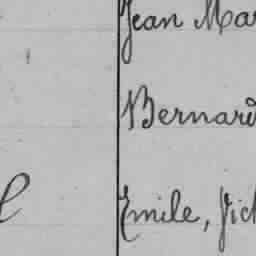 Jean Mar
Bernard
Emile, Vict